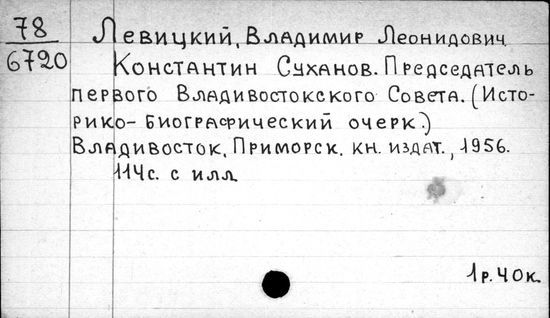 78
6720
Левицкий, Владимир Леонидович
Константин Суханов. Председатель
первого Владивостокского Совета. (Исто-
рико-биографический очерк.)
Владивосток, Приморск. кн. издат., 1956.
114с. с илл.
1р.40к.